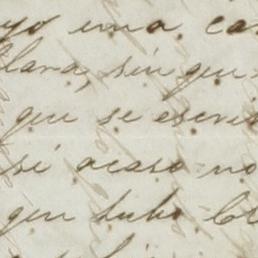 yo una ca
llana, sin que
que se escri
si acaso no
que hubo